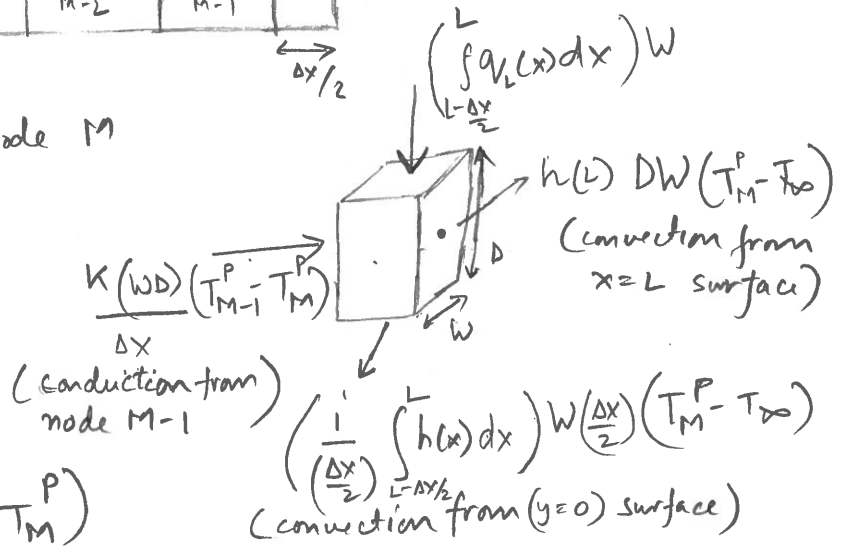 M-2 M-1
Δx/2
(∫_{L-Δx/2}^{L} q_L(x)dx) W
ode M
h(L) DW(T_M^P - T_∞)
(convection from
x=L surface)
D
W
K(WD)/Δx (T_{M-1}^P - T_M^P)
(conduction from
node M-1)
(1/(Δx/2) ∫_{L-Δx/2}^{L} h(x)dx) W(Δx/2)(T_M^P - T_∞)
(convection from (y=0) surface)
T_M^P)